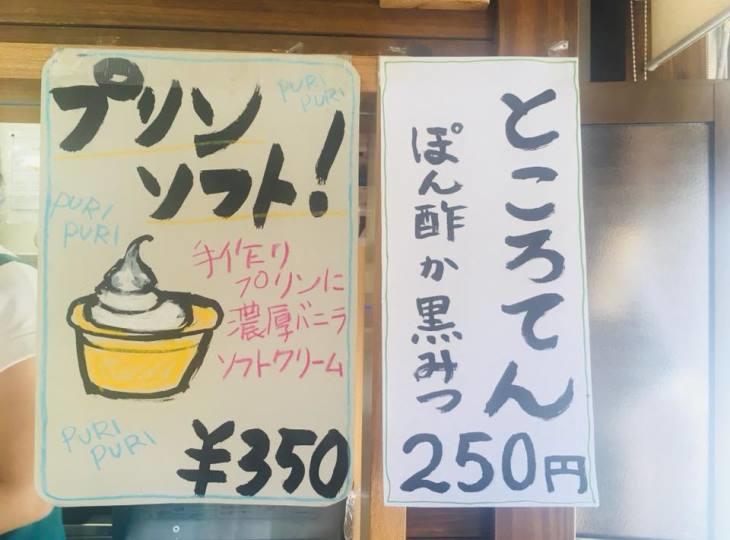 プリン
ソフト!
PURI
PURI
PURI
PURI
手作り
プリンに
濃厚バニラ
ソフトクリーム
PURI
PURI
¥350
ところてん
ぽん酢か黒みつ
250円